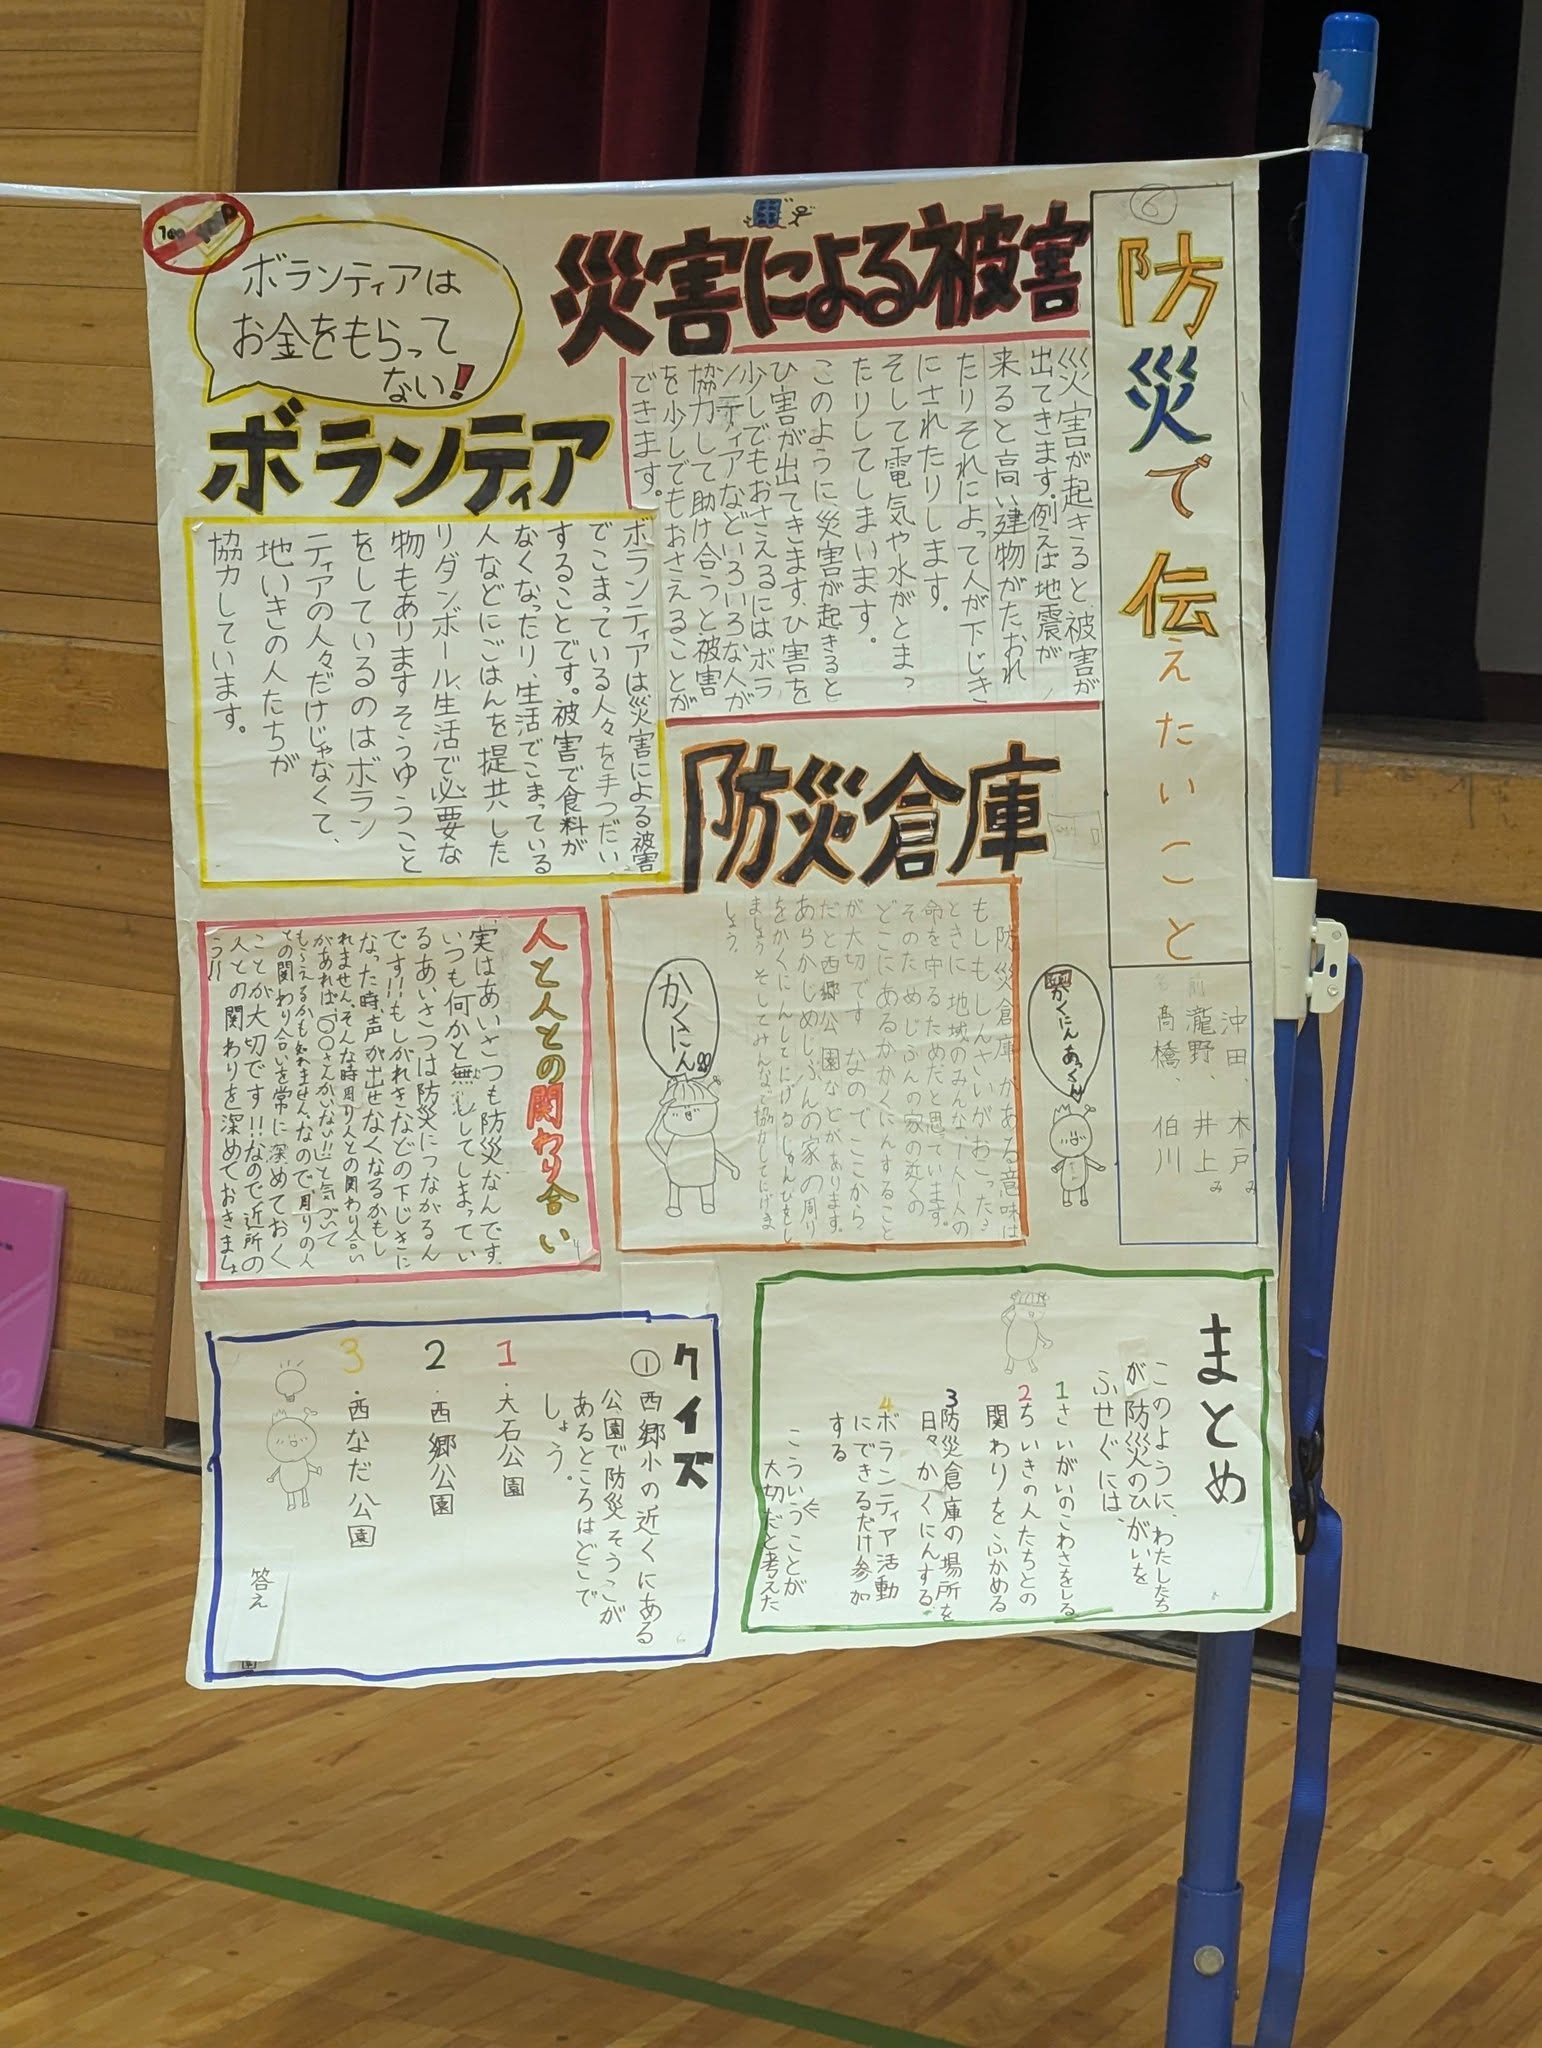 ⑥
防災で伝えたいこと
沖田 木戸
瀧野、井上
髙橋、伯川
災害による被害
災害が起きると被害が
出てきます。例えば地震が
来ると高い建物がたおれ
たりそれによって人が下じき
にされたりします。
そして電気や水がとまっ
たりしてしまいます。
このように災害が起きると
ひ害が出てきます、ひ害を
少しでもおさえるにはボラ
ンティアなどいろいろな人が
協力して助け合うと被害
を少しでもおさえることが
できます。
ボランティアは
お金をもらって
ない!
ボランティア
ボランティアは災害による被害
でこまっている人々を手つだい
することです。被害で食料が
なくなったり、生活でこまっている
人などにごはんを提共した
りダンボール、生活で必要な
物もありますそうゆうこと
をしているのはボラン
ティアの人々だけじゃなくて、
地いきの人たちが
協力しています。
防災倉庫
防災倉庫がある意味は
もしもしんさいがおこった
ときに地域のみんな、1人1人の
命を守るためだと思っています。
そのためじぶんの家の近くの
どこにあるかかくにんすること
が大切です なのでここから
だと西郷公園などがあります。
あらかじめじぶんの家の周り
をかくにんしてにげるじゅんびをし
ましょう そしてみんなで協力してにげま
しょう。
かくにん
かくにん
人と人との関わり合い
実はあいさつも防災なんです。
いつも何かと無ししてしまってい
るあいさつは防災につながるん
です!!もしがれきなどの下じきに
なった時、声が出せなくなるかもし
れません。そんな時周り人との関わり合い
があれば「〇〇さんがいない!!」と気づいて
もらえるかも知れません。なので周りの人
との関わり合いを常に深めておく
ことが大切です!!なので近所の
人との関わりを深めておきましょ
う!!
まとめ
このように、わたしたち
が防災のひがいを
ふせぐには、
1さいがいのこわさをしる
2ちいきの人たちとの
関わりをふかめる
3防災倉庫の場所を
日々かくにんする
4ボランティア活動
にできるだけ参加
する
こういうことが
大切だと考えた
クイズ
① 西郷小の近くにある
公園で防災そうこが
あるところはどこで
しょう。
1・大石公園
2・西郷公園
3・西なだ公園
答え